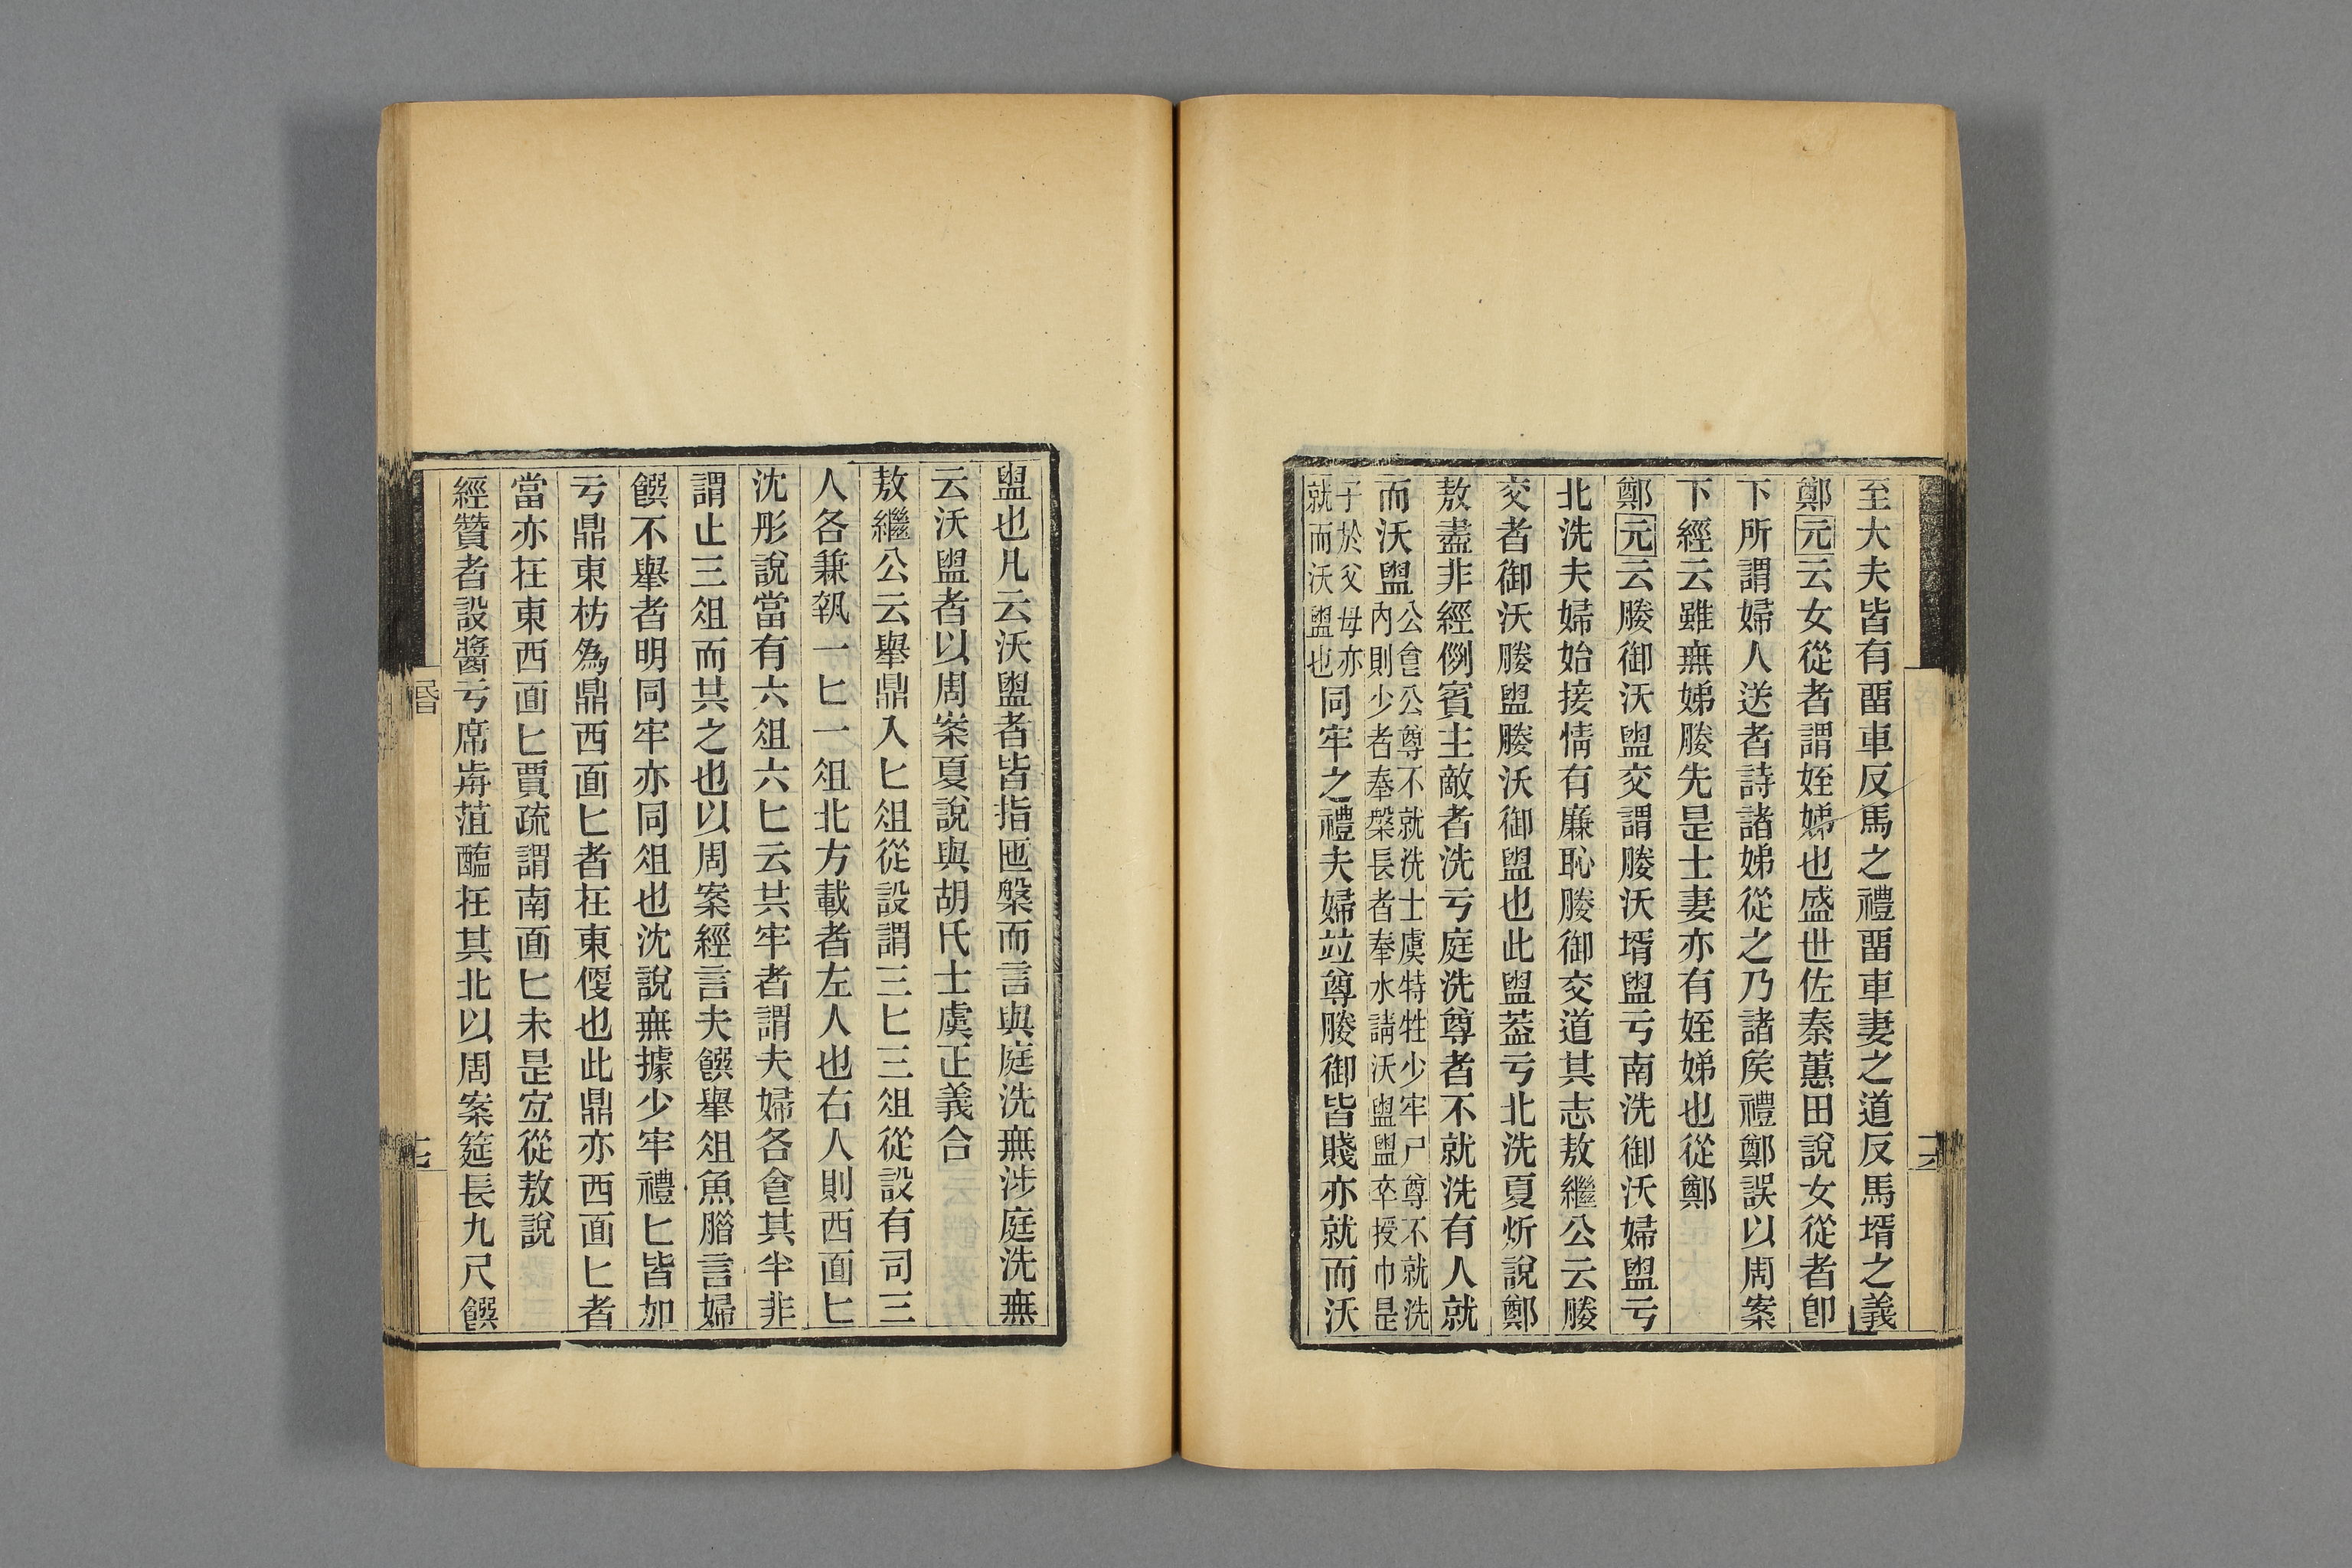 至大夫皆有畱車反馬之禮畱車妻之道反馬壻之義
鄭元云女從者謂姪娣也盛世佐秦蕙田說女從者卽
下所謂婦人送者詩諸娣從之乃諸矦禮鄭誤以周案
下經云雖無娣媵先是士妻亦有姪娣也從鄭
鄭元云媵御沃盥交謂媵沃壻盥亏南洗御沃婦盥亏
北洗夫婦始接情有廉恥媵御交道其志敖繼公云媵
交者御沃媵盥媵沃御盥也此盥葢亏北洗夏炘說鄭
敖盡非經例賓主敵者洗亏庭洗尊者不就洗有人就
而沃盥公食公尊不就洗士虞特牲少牢尸尊不就洗
內則少者奉槃長者奉水請沃盥盥卒授巾是
子於父母亦
就而沃盥也同牢之禮夫婦竝尊媵御皆賤亦就而沃
盥也凡云沃盥者皆指匜槃而言與庭洗無涉庭洗無
云沃盥者以周案夏說與胡氏士虞正義合
敖繼公云舉鼎入匕俎從設謂三匕三俎從設有司三
人各兼執一匕一俎北方載者左人也右人則西面匕
沈彤說當有六俎六匕云共牢者謂夫婦各食其半非
謂止三俎而共之也以周案經言夫饌舉俎魚腊言婦
饌不舉者明同牢亦同俎也沈說無據少牢禮匕皆加
亏鼎東枋爲鼎西面匕者在東偃也此鼎亦西面匕者
當亦在東西面匕賈疏謂南面匕未是宜從敖說
經贊者設醬亏席歬菹醢在其北以周案筵長九尺饌
昏
十七
十六